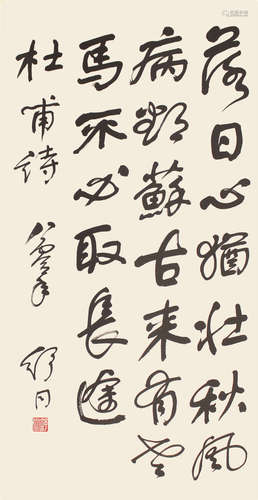 落日心猶壮秋風
病欲蘇古来存老
馬不必取長途
杜甫詩 八零年 舒同